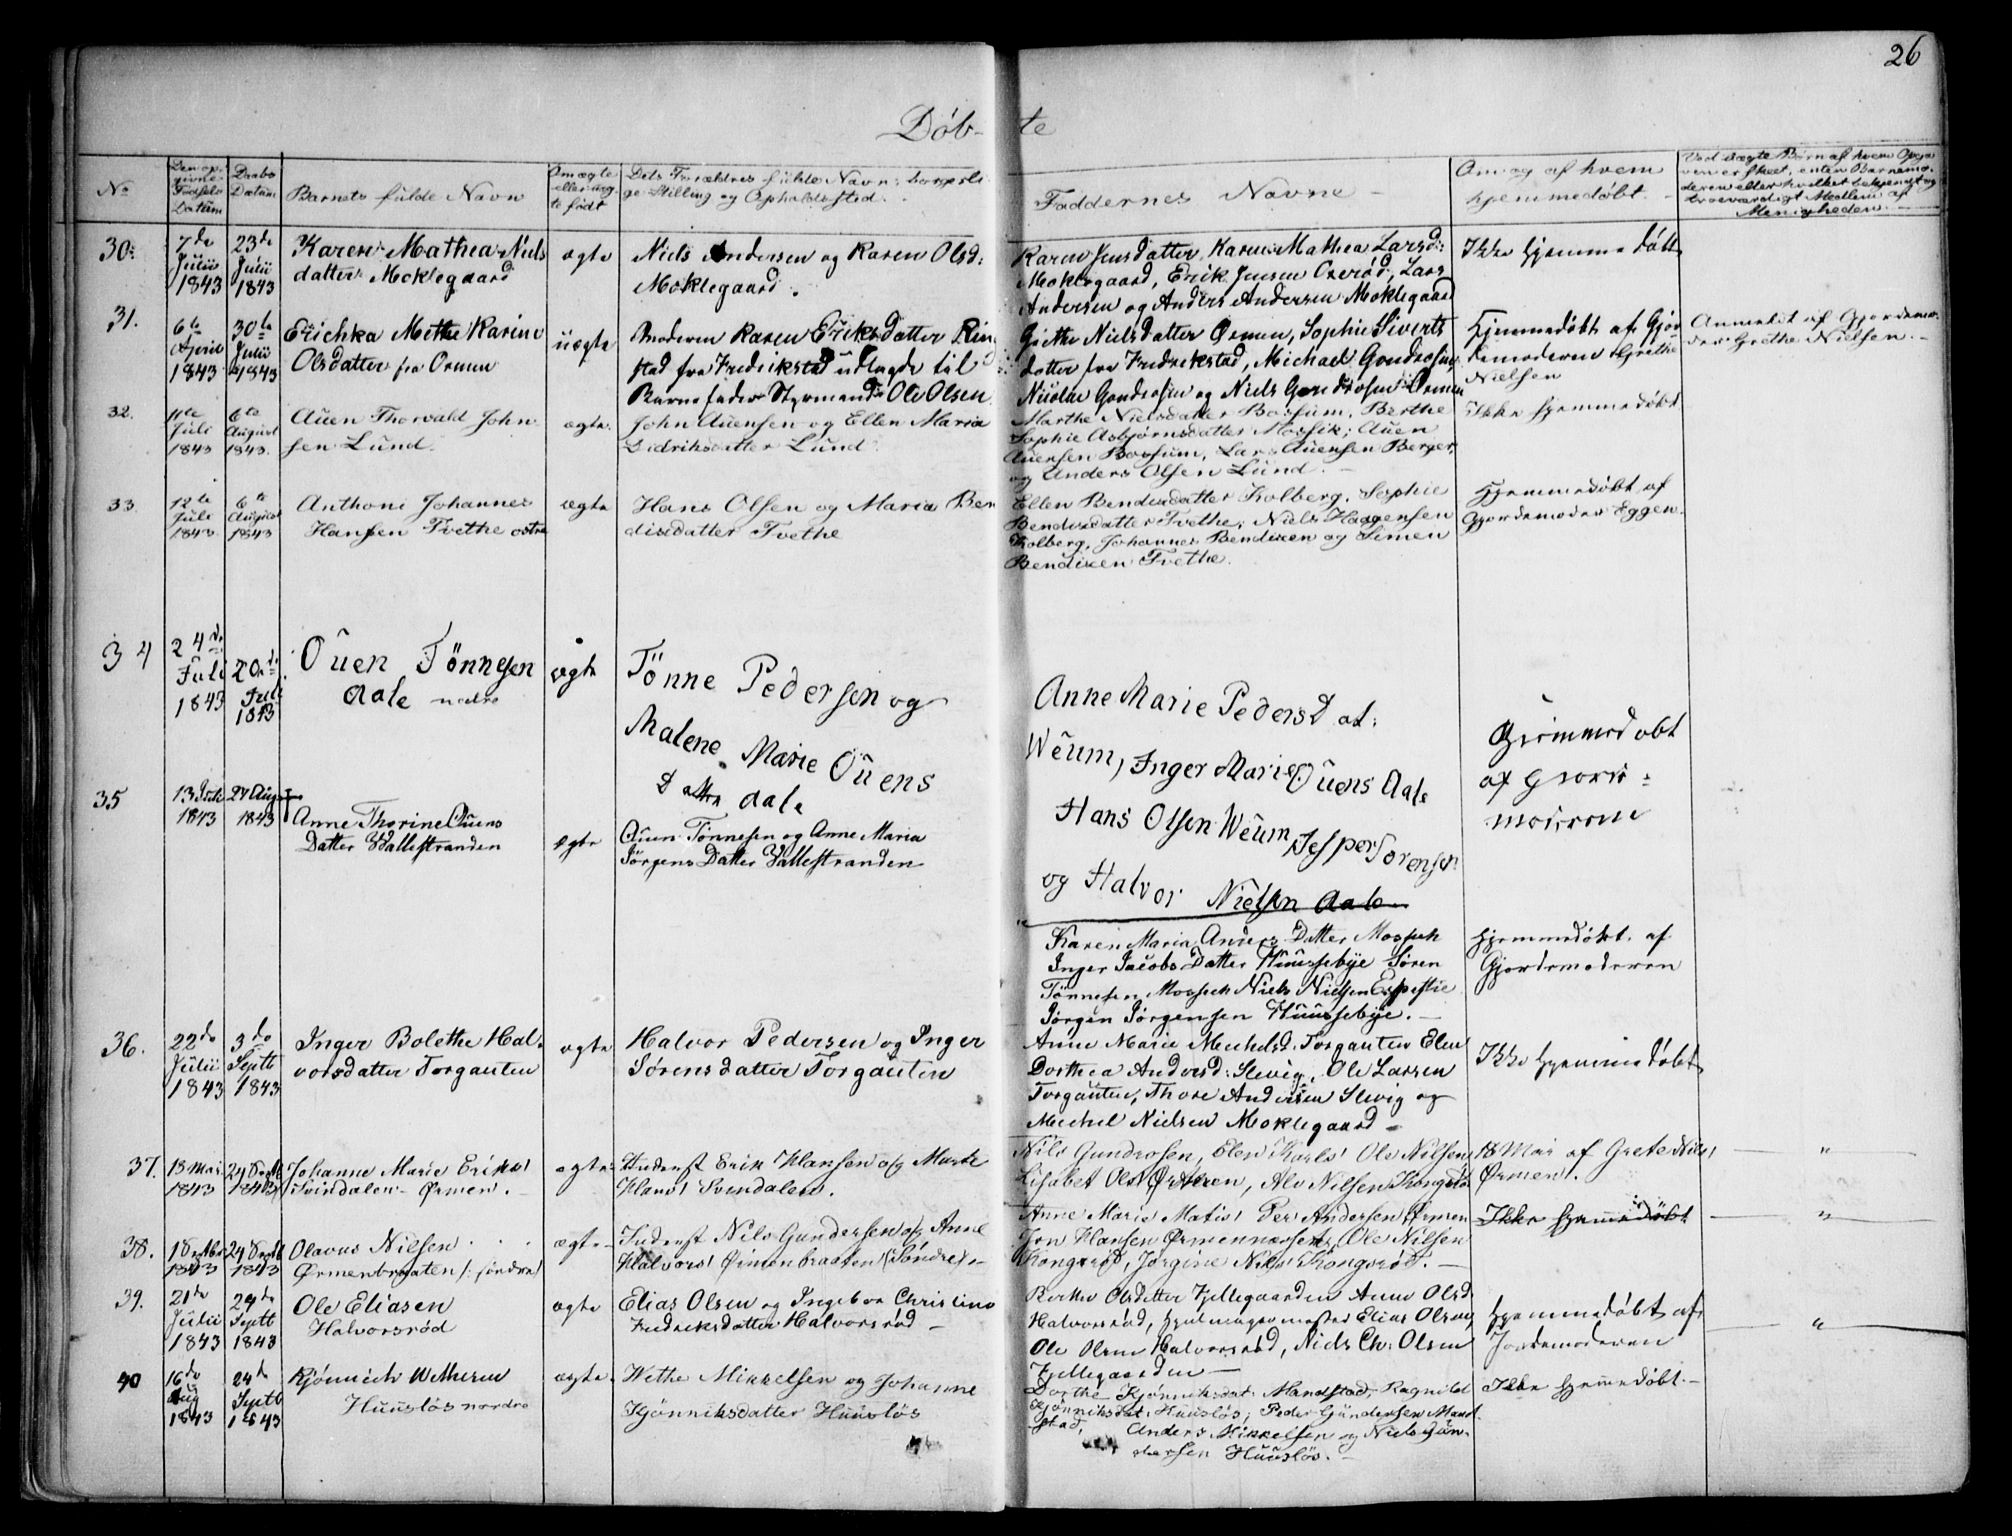 26
Döb- te
No
Den op-
givne
Födsels
Datum
Daabs
Datum
Barnets fulde Navn
Om ægte
eller uæg-
te født
Dets Forældres fulde Navn, borgerli-
ge Stilling og Opholdssted.
Faddernes Navne
Om og af hvem
hjemmedöbt.
Ved uægte Børn af hvem Opga
ven er skeet, enten Barnemo-
deren eller hvilket bekjendt og
troeværdigt Medlem af
Menigheden.
30.
7de
Julii
1843
23de
Julii
1843
Karen Mathea Niels
datter Moklegaard
ægte
Niels Andersen og Karen Olsd:
Moklegaard.
Karen Jensdatter, Karen Mathea Larsd:
Moklegaard, Erik Jensen Oxerød, Lars
Andersen og Anders Andersen Moklegaard
Ikke hjemmedöbt
31.
6te
April
1843
30te
Julii
1843
Erichka Mathe Karine
Olsdatter fra Ormen
uægte
Moderen Karen Eriksdatter Ring
stad fra Fredrikstad udlagde til
Barnefader Styrmand Ole Olsen
Grethe Nielsdatter Ørmen, Sophie Siverts
datter fra Fredrikstad, Michael Gundrosen
Nicolai Gundrosen og Niels Gundrosen Ørmen
Hjemmedöbt af Gjor-
demoderen Grethe
Nielsen
Anmeldt af Gjordemo-
der Grethe Nielsen.
32.
11te
Juli
1843
6te
August
1843.
Auen Thorvald John
sen Lund.
ægte.
John Auensen og Ellen Maria
Didriksdatter Lund.
Marthe Nielsdatter Bossum, Berthe
Sophie Asbjørnsdatter Mossik; Auen
Auensen Bossum, Lars Auensen Berger,
og Anders Olsen Lund.
Ikke hjemmedöbt
33
12te
Juli
1843
6te
August
1843
Anthoni Johannes
Hansen Tvethe østre
ægte
Hans Olsen og Maria Ben
disdatter Tvethe
Ellen Bendisdatter Kolberg, Sophie
Bendixdatter Tvethe; Niels Haagensen
Kolberg, Johannes Bendixen og Simen
Bendixen Tvethe.
Hjemmedöbt af
Gjordemoder Eggen.
34
24de
Juli
1843
20de
Juli
1843
Ouen Tönnesen
Aale nedre
ægte
Tönne Pedersen og
Malene Marie Ouens
Datter Aale
Anne Marie Pedersd at:
Weum, Inger Marie Ouens Aale
Hans Olsen Weum, Jesper Sorensen
og Halvor Nielsen Aale
Hiemmedobt
af Giorde:
moderene
35
13 Juli
1843
27 Aug
1843
Anne Thorine Ouens
Datter Vallestranden
ægte
Ouen Tønnesen og Anne Maria
Jørgens Datter Vallestranden
Karen Maria Anders Datter Mosseh
Inger Jacobs Datter Huusebye Søren
Tønnesen Mosseh Niels Nielsen
Jørgen Jørgensen Huusebye.
Hjemmedöbt af
Gjordemoderen
36.
22de
Julii
1843
3de
Septb
1843
Inger Bolethe Hal-
vorsdatter Torgauten
ægte
Halvor Pedersen og Inger
Sørensdatter Torgauten
Anne Marie Michelsd. Torgauten Elen
Dorthea Andersd: Slevig, Ole Larsen
Torgauten, Thore Andersen Slevig og
Michel Nielsen Moklegaard
Ikke hjemmedöbt
37.
13 Mai
1843
24 Septb
1843
Johanne Marie Eriks!
Svindalen- Ørmen.
ægte
Inderst Erik Hansen og Marte
Hans! Svendalen.
Nils Gundrosen, Elen Karls! Ole Nilsen
Lisabet Ols! Ørmen, Alv Nilsen Kongsrö
18 Mai af Grete Nils!
Ørmen!.
"
38.
1843
24 Septb
1843
Olavus Nilsen
Ørmenbraaten /: söndre/
ægte
Inderst Nils Gundersen og Anne
Halvors! Ørmenbraaten (Söndre)
Anne Marie Matis! Per Andersen, Ørmen
Jon Hansen Ørmen Ole Nilsen
Kongsrød, Jörgine Nils! Kongsrød.
Ikke hjemmedöbt
"
39.
21de
Julii
1843
24de
Septb
1843
Ole Eliasen
Halvorsrød
ægte
Elias Olsen og Ingebor Christine
Fredriksdatter Halvorsrød
Berthe Olsdatter Fjellegaarden Anne Olsd
Halvorsrød, Hjulmagermester Elias Olsen
Ole Olsen Halvorsrød, Niels Ch: Olsen
Fjellegaarden
Hjemmedöbt af
Jordemoderen
"
40
16de
Aug
1843
24de
Septb
1843
Kjönnich Wethesen
Huuslös nordre
ægte.
Wethe Mikkelsen og Johanne
Kjönniksdatter Huuslös
Dorthe Kjönniksdat: Mandstad, Ragnild
Kjönniksdat: Huuslös; Peder Gundersen Mand
stad, Anders Mikkelsen og Niels Gun-
dersen Huuslös.
Ikke hjemmedöbt.